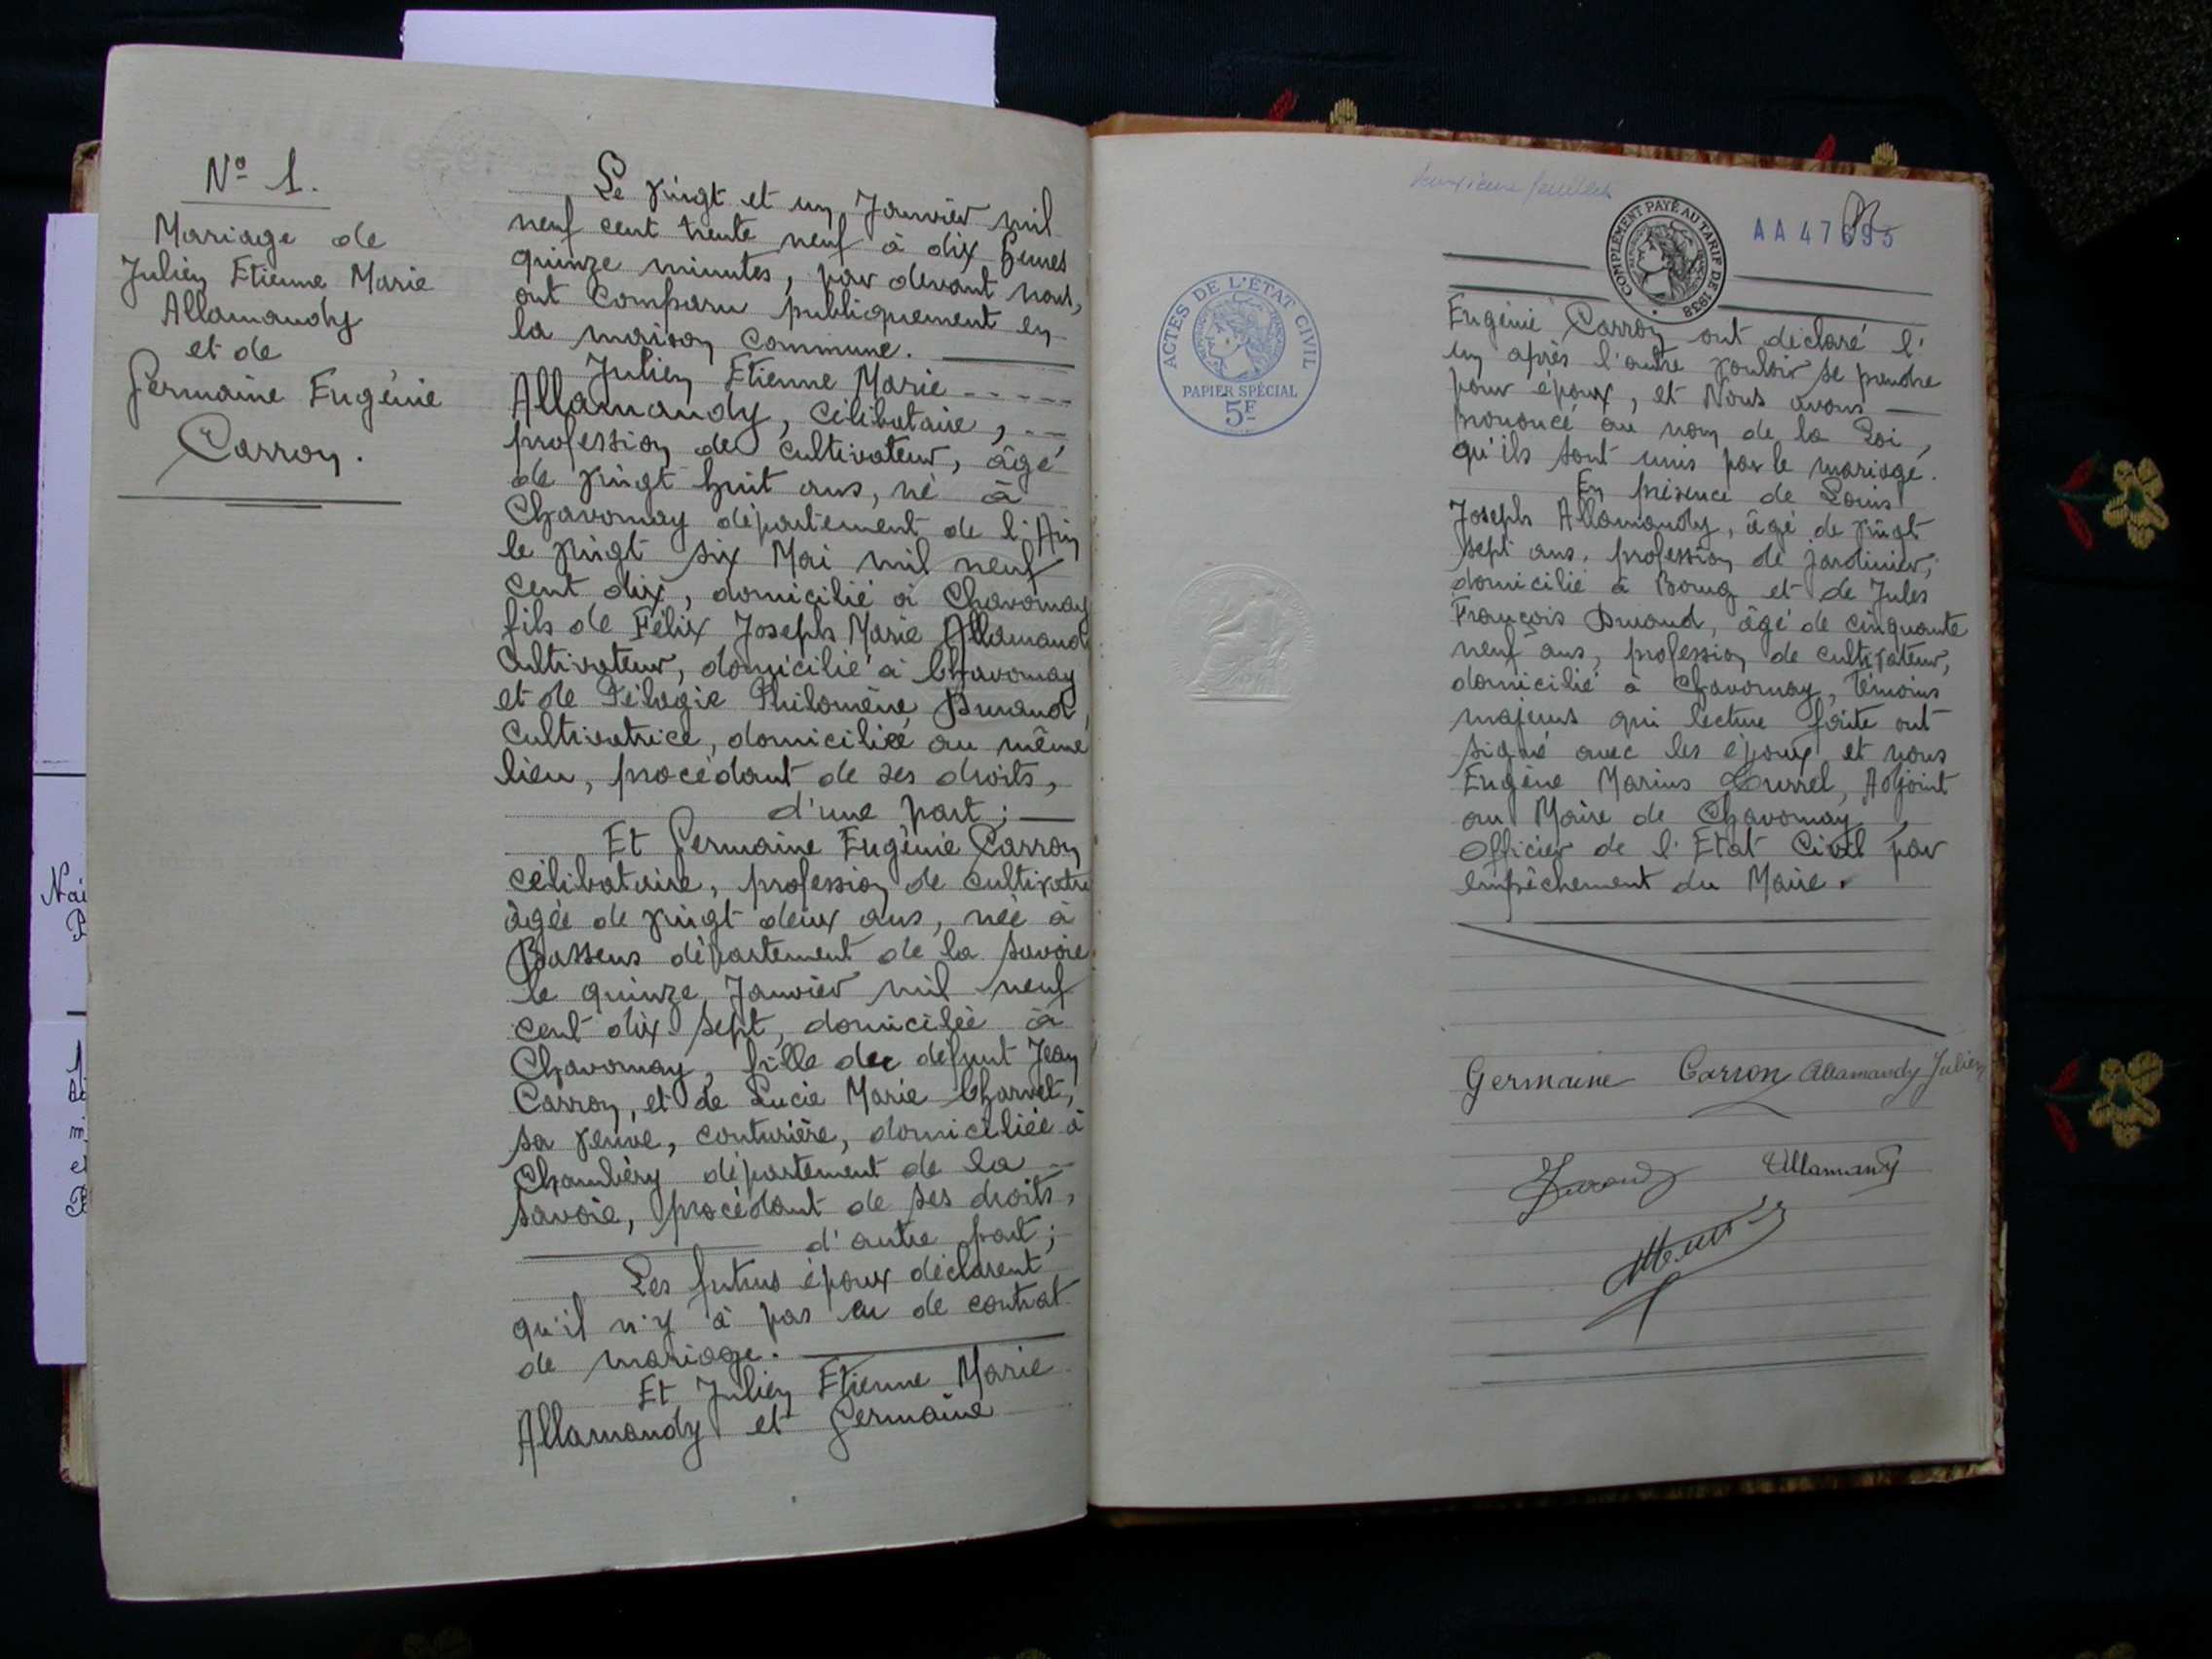 Nº 1.
Mariage de
Julien Etienne Marie
Allamandy
et de
Germaine Eugénie
Carron.
Le vingt et un Janvier mil
neuf cent trente neuf à dix heures
quinze minutes, par devant nous,
ont comparu publiquement en
la maison commune.
Julien Etienne Marie
Allamandy, célibataire,
profession de cultivateur, âgé
de vingt huit ans, né à
Chavornay département de l'Ain
le vingt six Mai mil neuf
cent dix, domicilié à Chavornay
fils de Félix Joseph Marie Allamand
cultivateur, domicilié à Chavornay
et de Pélagie Philomène Durand,
cultivatrice, domiciliée au même
lieu, procédant de ses droits,
d'une part;
Et Germaine Eugénie Carron
célibataire, profession de cultivatri
âgée de vingt deux ans, née à
Bassens département de la Savoie
le quinze Janvier mil neuf
cent dix sept, domiciliée à
Chavornay, fille de défunt Jean
Carron, et de Lucie Marie Charvet,
sa veuve, couturière, domiciliée à
Chambéry département de la
Savoie, procédant de ses droits,
d'autre part;
Les futurs époux déclarent
qu'il n'y à pas eu de contrat
de mariage.
Et Julien Etienne Marie
Allamandy et Germaine
ACTES DE L'ÉTAT CIVIL
PAPIER SPÉCIAL
5F
COMPLÉMENT PAYÉ AU TARIF DE 1938
AA 47695
Eugénie Carron ont déclaré l'
un après l'autre vouloir se prendre
pour époux, et Nous avons
prononcé au nom de la Loi,
qu'ils sont unis par le mariage.
En présence de Louis
Joseph Allamandy, âgé de vingt
sept ans, profession de jardinier,
domicilié à Bourg et de Jules
François Durand, âgé de cinquante
neuf ans, profession de cultivateur,
domicilié à Chavornay, témoins
majeurs qui lecture faite ont
signé avec les époux et nous
Eugène Marius Adjoint
au Maire de Chavornay,
Officier de l'Etat Civil par
empêchement du Maire.
Germaine Carron Allamandy Julien
Durand Allamandy
Nai